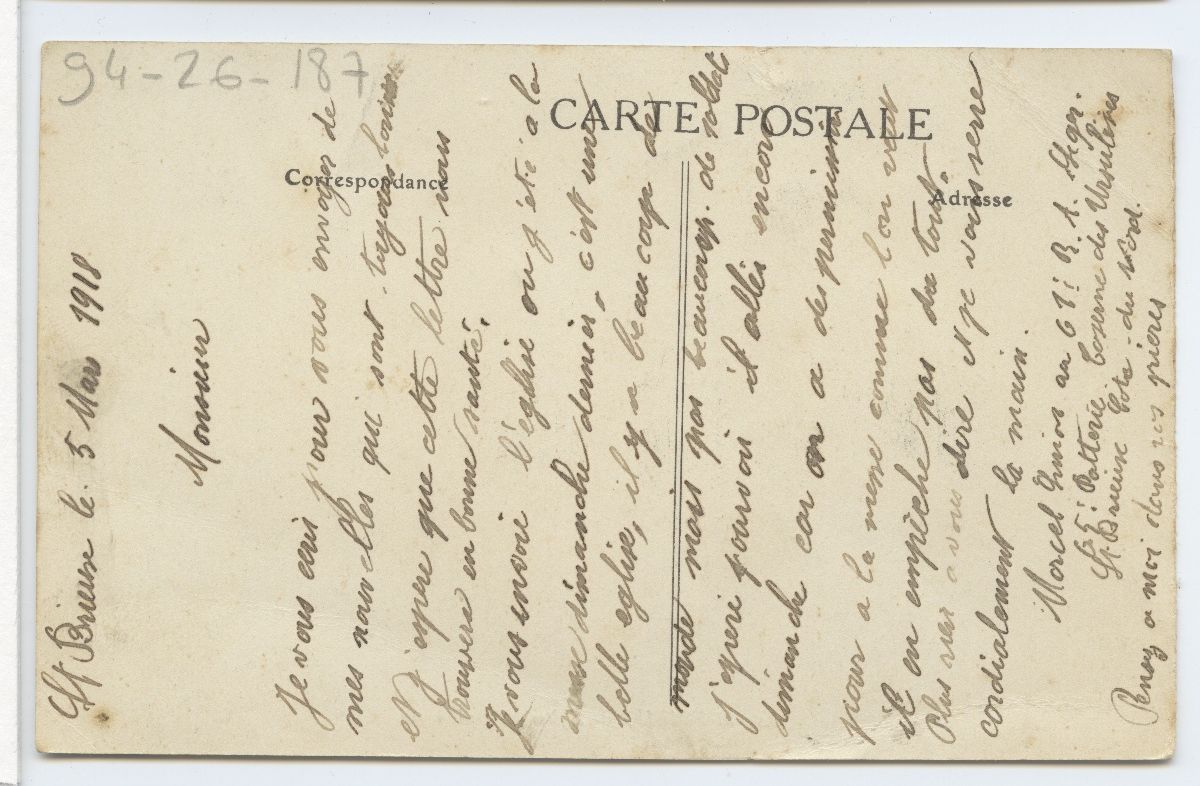 94-26-187
CARTE POSTALE
Correspondance
Adresse
St Brieuc le 5 Mars 1918
Monsieur
Je vous écris pour vous envoyer de
mes nouvelles qui sont toujours
et j'espere que cette lettre vous
trouvera en bonne santé.
Je vous envoie l'église ou j'été à la
dimanche dernier, c'est une
belle eglise, il y a beaucoup de
monde mais pas beaucoup de soldat
j'espere pouvoir il allés encore
dimanche car on a des permission
pour a la messe comme l'on veut
il en empèche pas du tout.
Plus rien a vous dire et je vous serre
cordialement la main.
Marcel au 61e R. A.
Batterie Caserne des Ursulines
St Brieuc Cote-du Nord.
Penez a moi dans vos prieres